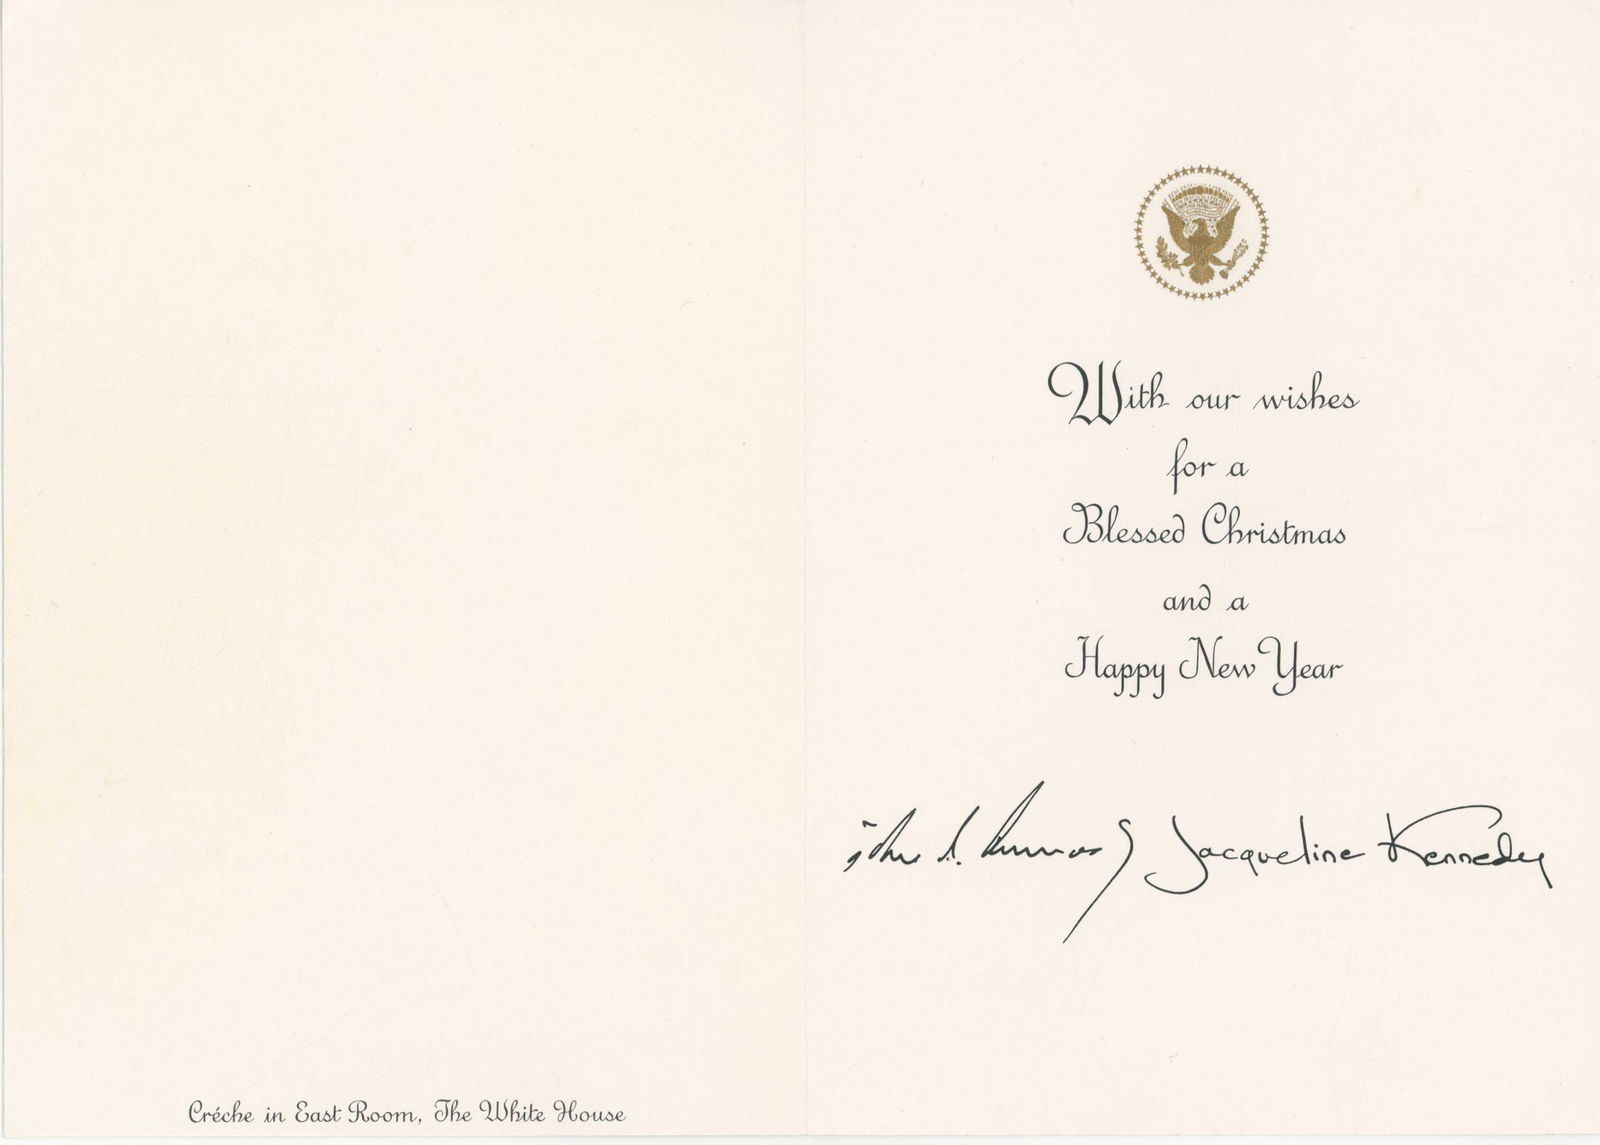 With our wishes
for a
Blessed Christmas
and a
Happy New Year
John F. Kennedy Jacqueline Kennedy
Créche in East Room, The White House